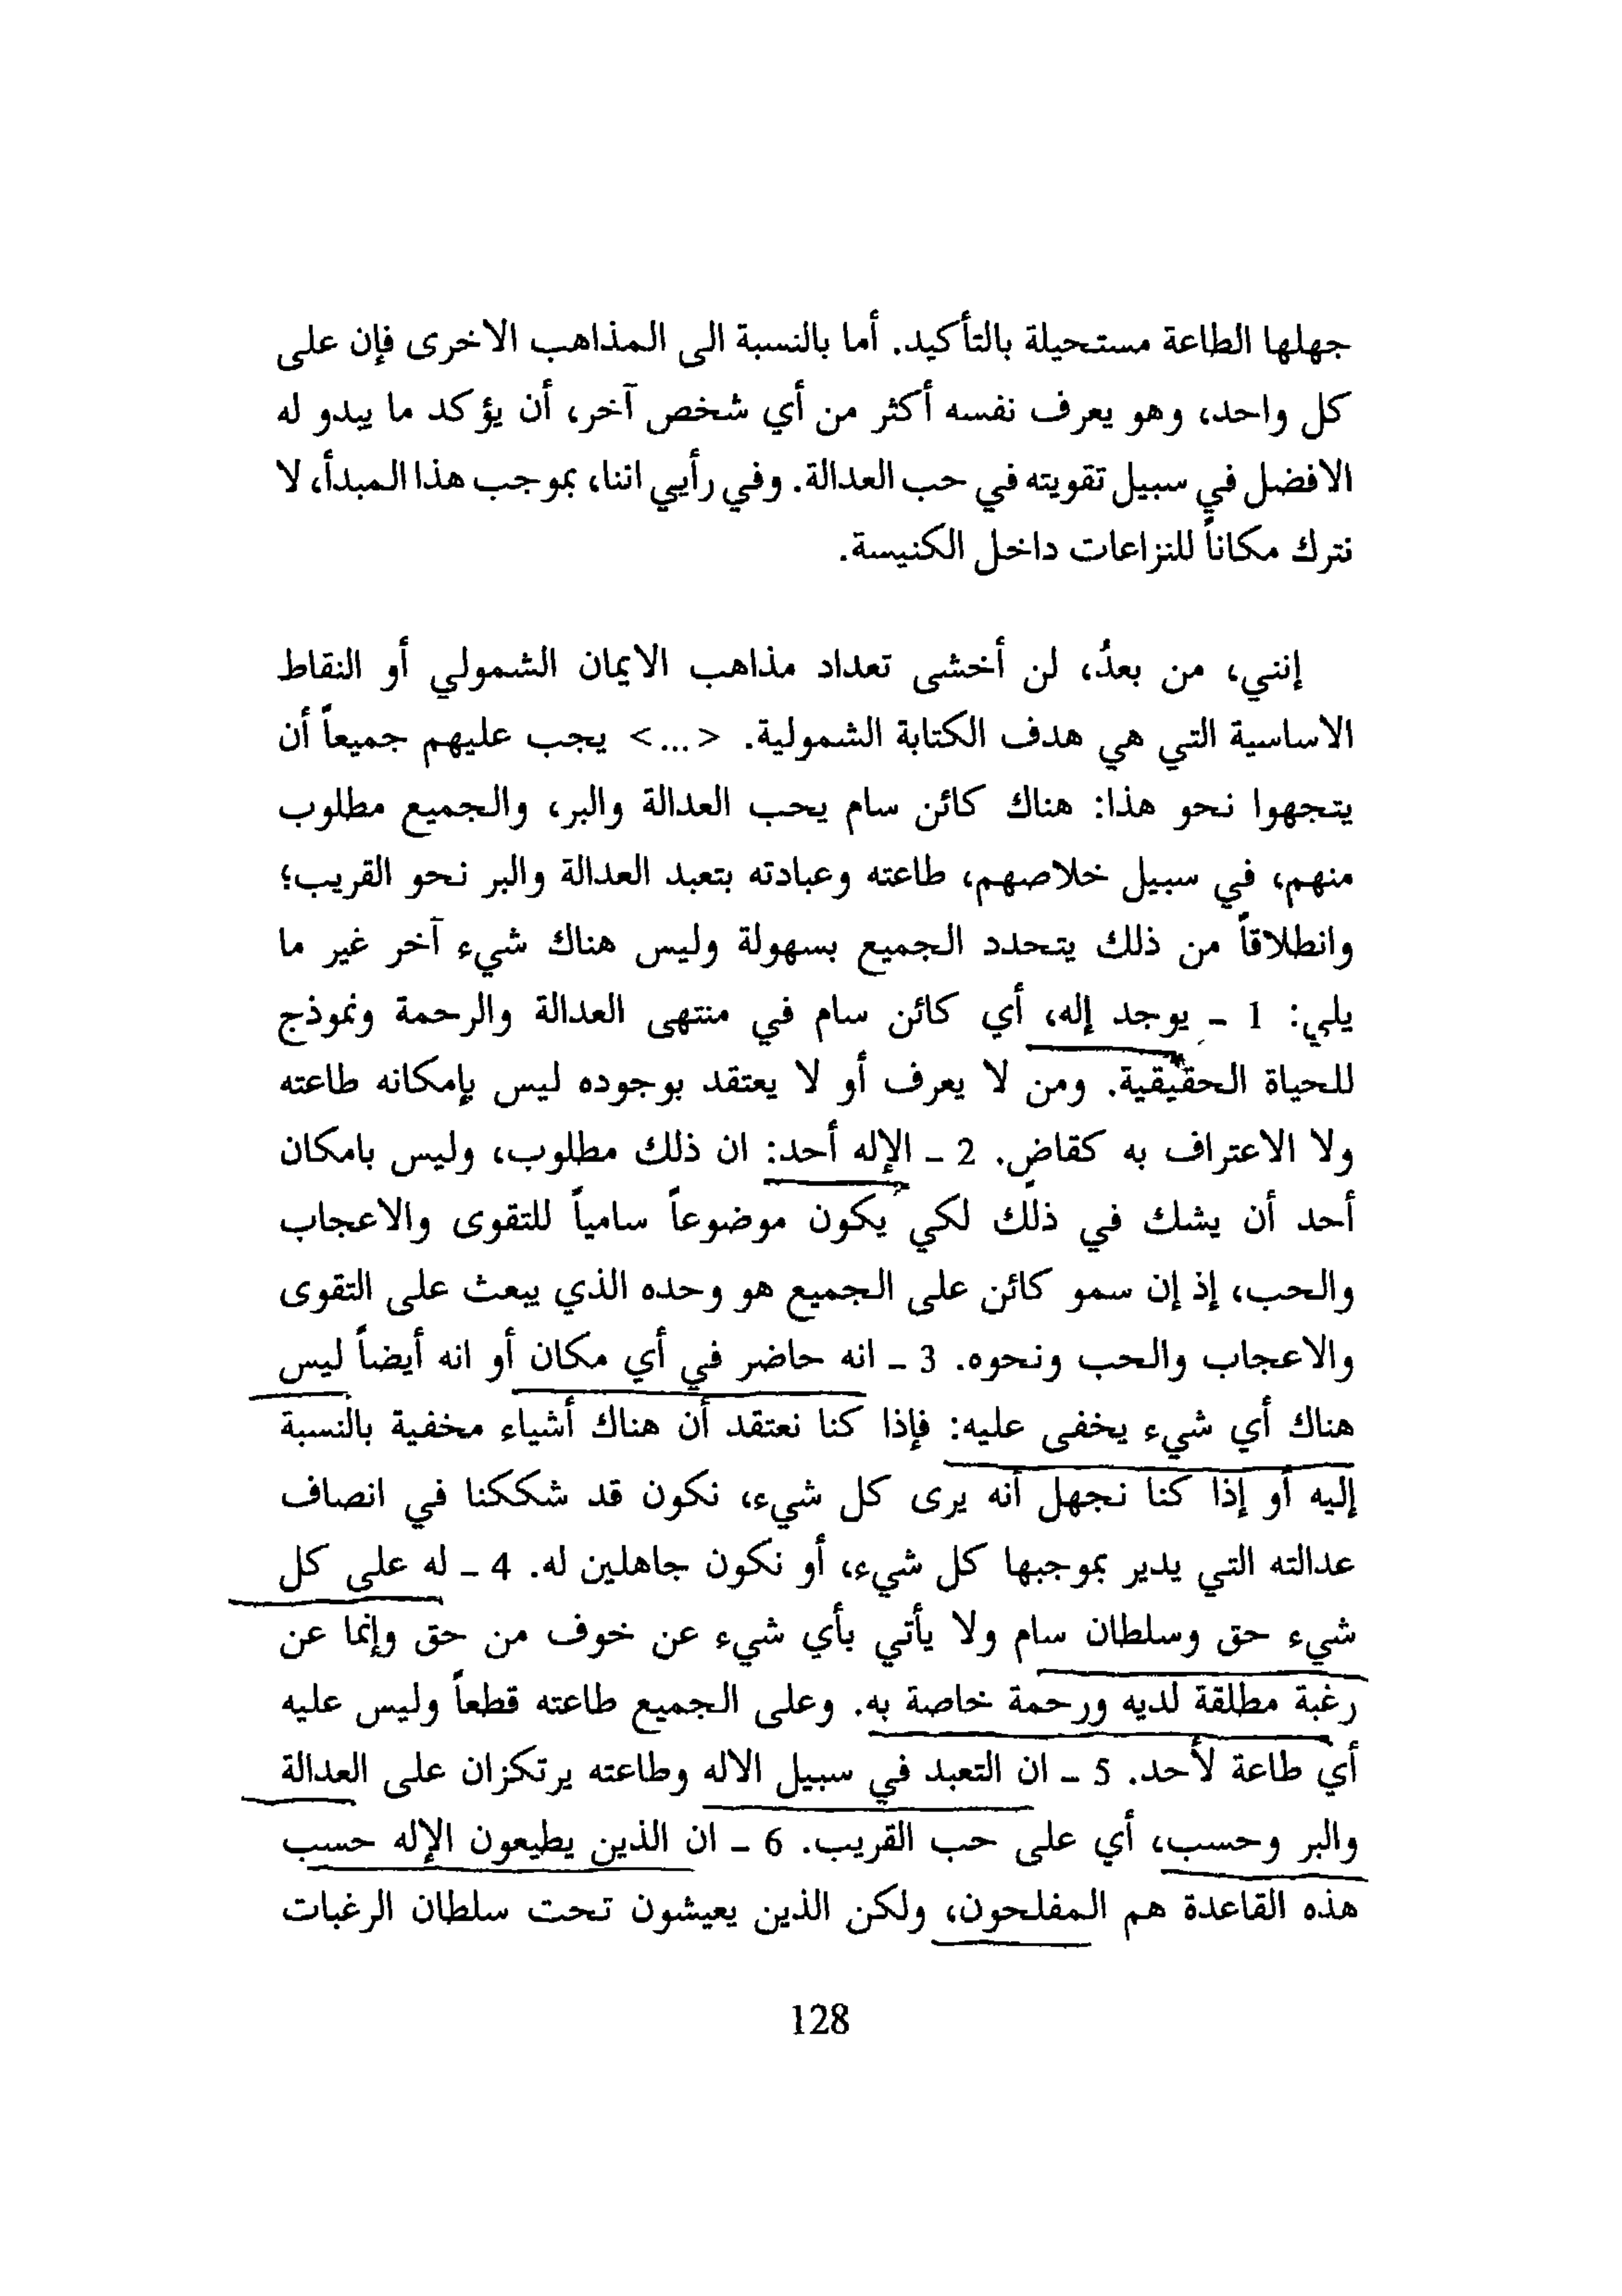 جهلها الطاعة مستحيلة بالتأكيد. أما بالنسبة الى المذاهب الاخرى فإن على
كل واحد، وهو يعرف نفسه أكثر من أي شخص آخر، أن يؤكد ما يبدو له
الافضل في سبيل تقويته في حب العدالة. وفي رأيي اننا، بموجب هذا المبدأ، لا
نترك مكاناً للنزاعات داخل الكنيسة.
إنني، من بعدُ، لن أخشى تعداد مذاهب الايمان الشمولي أو النقاط
الاساسية التي هي هدف الكتابة الشمولية. <...> يجب عليهم جميعاً أن
يتجهوا نحو هذا: هناك كائن سام يحب العدالة والبر، والجميع مطلوب
منهم، في سبيل خلاصهم، طاعته وعبادته بتعبد العدالة والبر نحو القريب؛
وانطلاقاً من ذلك يتحدد الجميع بسهولة وليس هناك شيء آخر غير ما
يلي: 1 - يوجد إله، أي كائن سام في منتهى العدالة والرحمة ونموذج
للحياة الحقيقية. ومن لا يعرف أو لا يعتقد بوجوده ليس بإمكانه طاعته
ولا الاعتراف به كقاضٍ. 2 - الإله أحد: ان ذلك مطلوب، وليس بامكان
أحد أن يشك في ذلك لكي يكون موضوعاً سامياً للتقوى والاعجاب
والحب، إذ إن سمو كائن على الجميع هو وحده الذي يبعث على التقوى
والاعجاب والحب ونحوه. 3 - انه حاضر في أي مكان أو انه أيضاً ليس
هناك أي شيء يخفى عليه: فإذا كنا نعتقد أن هناك أشياء مخفية بالنسبة
إليه أو إذا كنا نجهل أنه يرى كل شيء، نكون قد شككنا في انصاف
عدالته التي يدير بموجبها كل شيء، أو نكون جاهلين له. 4 - له على كل
شيء حق وسلطان سام ولا يأتي بأي شيء عن خوف من حق وإنما عن
رغبة مطلقة لديه ورحمة خاصة به. وعلى الجميع طاعته قطعاً وليس عليه
أي طاعة لأحد. 5 - ان التعبد في سبيل الاله وطاعته يرتكزان على العدالة
والبر وحسب، أي على حب القريب. 6 - ان الذين يطيعون الإله حسب
هذه القاعدة هم المفلحون، ولكن الذين يعيشون تحت سلطان الرغبات
128